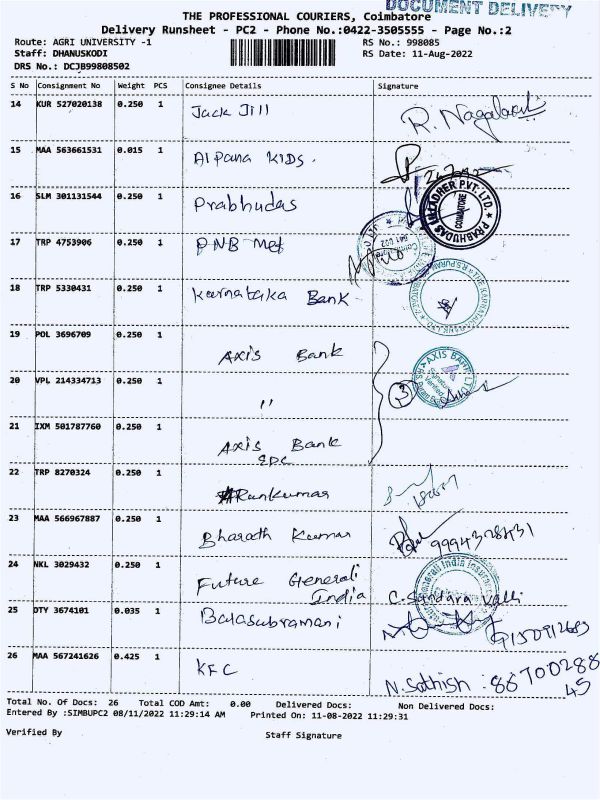 DOCUMENT DELIVERY
THE PROFESSIONAL COURIERS, Coimbatore
Delivery Runsheet - PC2 - Phone No.:0422-3505555 - Page No.:2
Route: AGRI UNIVERSITY -1 RS No.: 998085
Staff: DHANUSKODI RS Date: 11-Aug-2022
DRS No.: DCJB99808502
S No Consignment No Weight PCS Consignee Details Signature
14 KUR 527020138 0.250 1 Jack Jill R. Nagalaxmi
15 MAA 563661531 0.015 1 Alpana KIDS.
16 SLM 301131544 0.250 1 Prabhudas
PRABHUDAS PVT. LTD. COIMBATORE
17 TRP 4753906 0.250 1 PNB Met
18 TRP 5330431 0.250 1 Karnataka Bank
THE KARNATAKA BANK LTD. R.S.PURAM
19 POL 3696709 0.250 1 Axis Bank
AXIS BANK LTD Signature Verified
20 VPL 214334713 0.250 1 " 3
21 IXM 501787760 0.250 1 Axis Bank
22 TRP 8270324 0.250 1 Runkumar
23 MAA 566967887 0.250 1 Bharath Kumar
24 NKL 3029432 0.250 1 Future Generali
India C. Sundara Valli
Future Generali India Insurance
25 DTY 3674101 0.035 1 Balasubramani 9150912683
26 MAA 567241626 0.425 1 KFC N. Sathish . 86700288
45
Total No. Of Docs: 26 Total COD Amt: 0.00 Delivered Docs: Non Delivered Docs:
Entered By :SIMBUPC2 08/11/2022 11:29:14 AM Printed On: 11-08-2022 11:29:31
Verified By Staff Signature